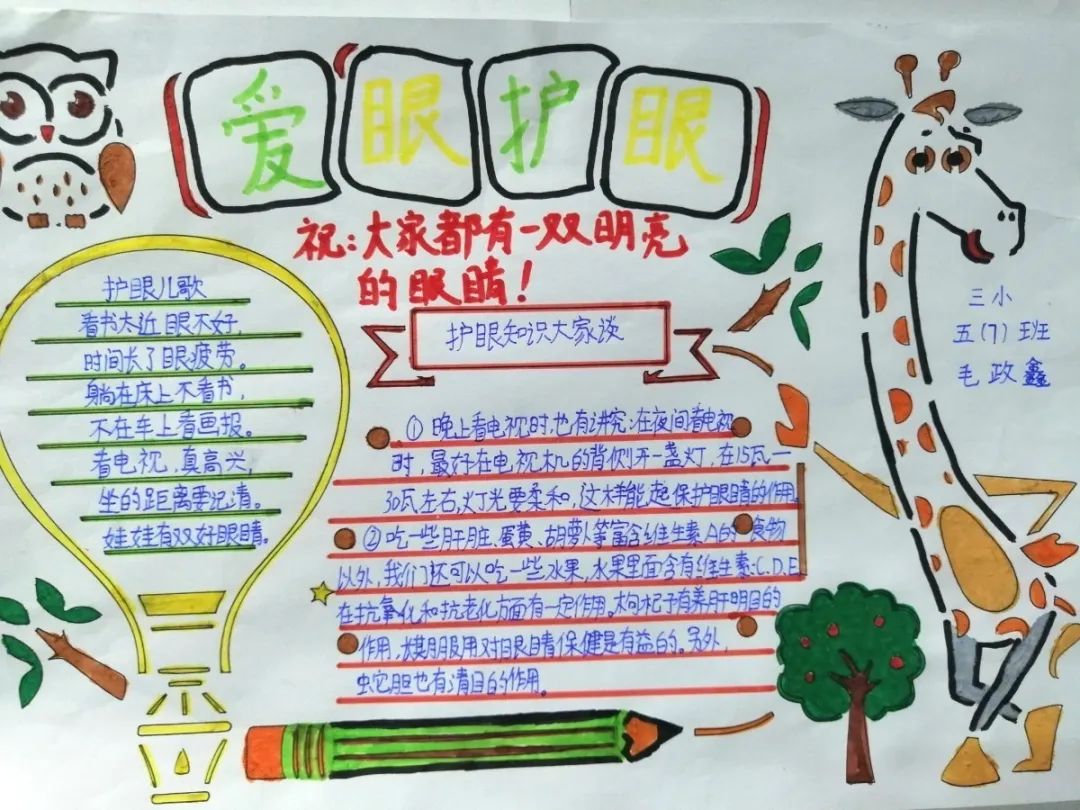 爱眼护眼
祝:大家都有一双明亮
的眼睛!
护眼儿歌
看书太近眼不好,
时间长了眼疲劳。
躺在床上不看书,
不在车上看画报。
看电视,真高兴,
坐的距离要记清。
娃娃有双好眼睛。
护眼知识大家谈
①晚上看电视时,也有讲究:在夜间看电视
时,最好在电视机的背侧开一盏灯,在15瓦一
30瓦左右,灯光要柔和,这样能起保护眼睛的作用。
②吃一些肝脏、蛋黄、胡萝卜等富含维生素A的食物
以外,我们还可以吃一些水果,水果里面含有维生素:C.D.E
在抗氧化和抗老化方面有一定作用。枸杞子有养肝明目的
作用,长期服用对眼睛保健是有益的。另外,
蛇胆也有清目的作用。
三小
五(7)班
毛政鑫